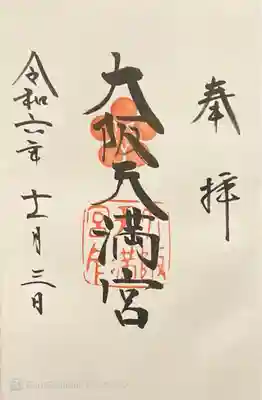 奉拝
大阪天満宮
令和六年十一月三日